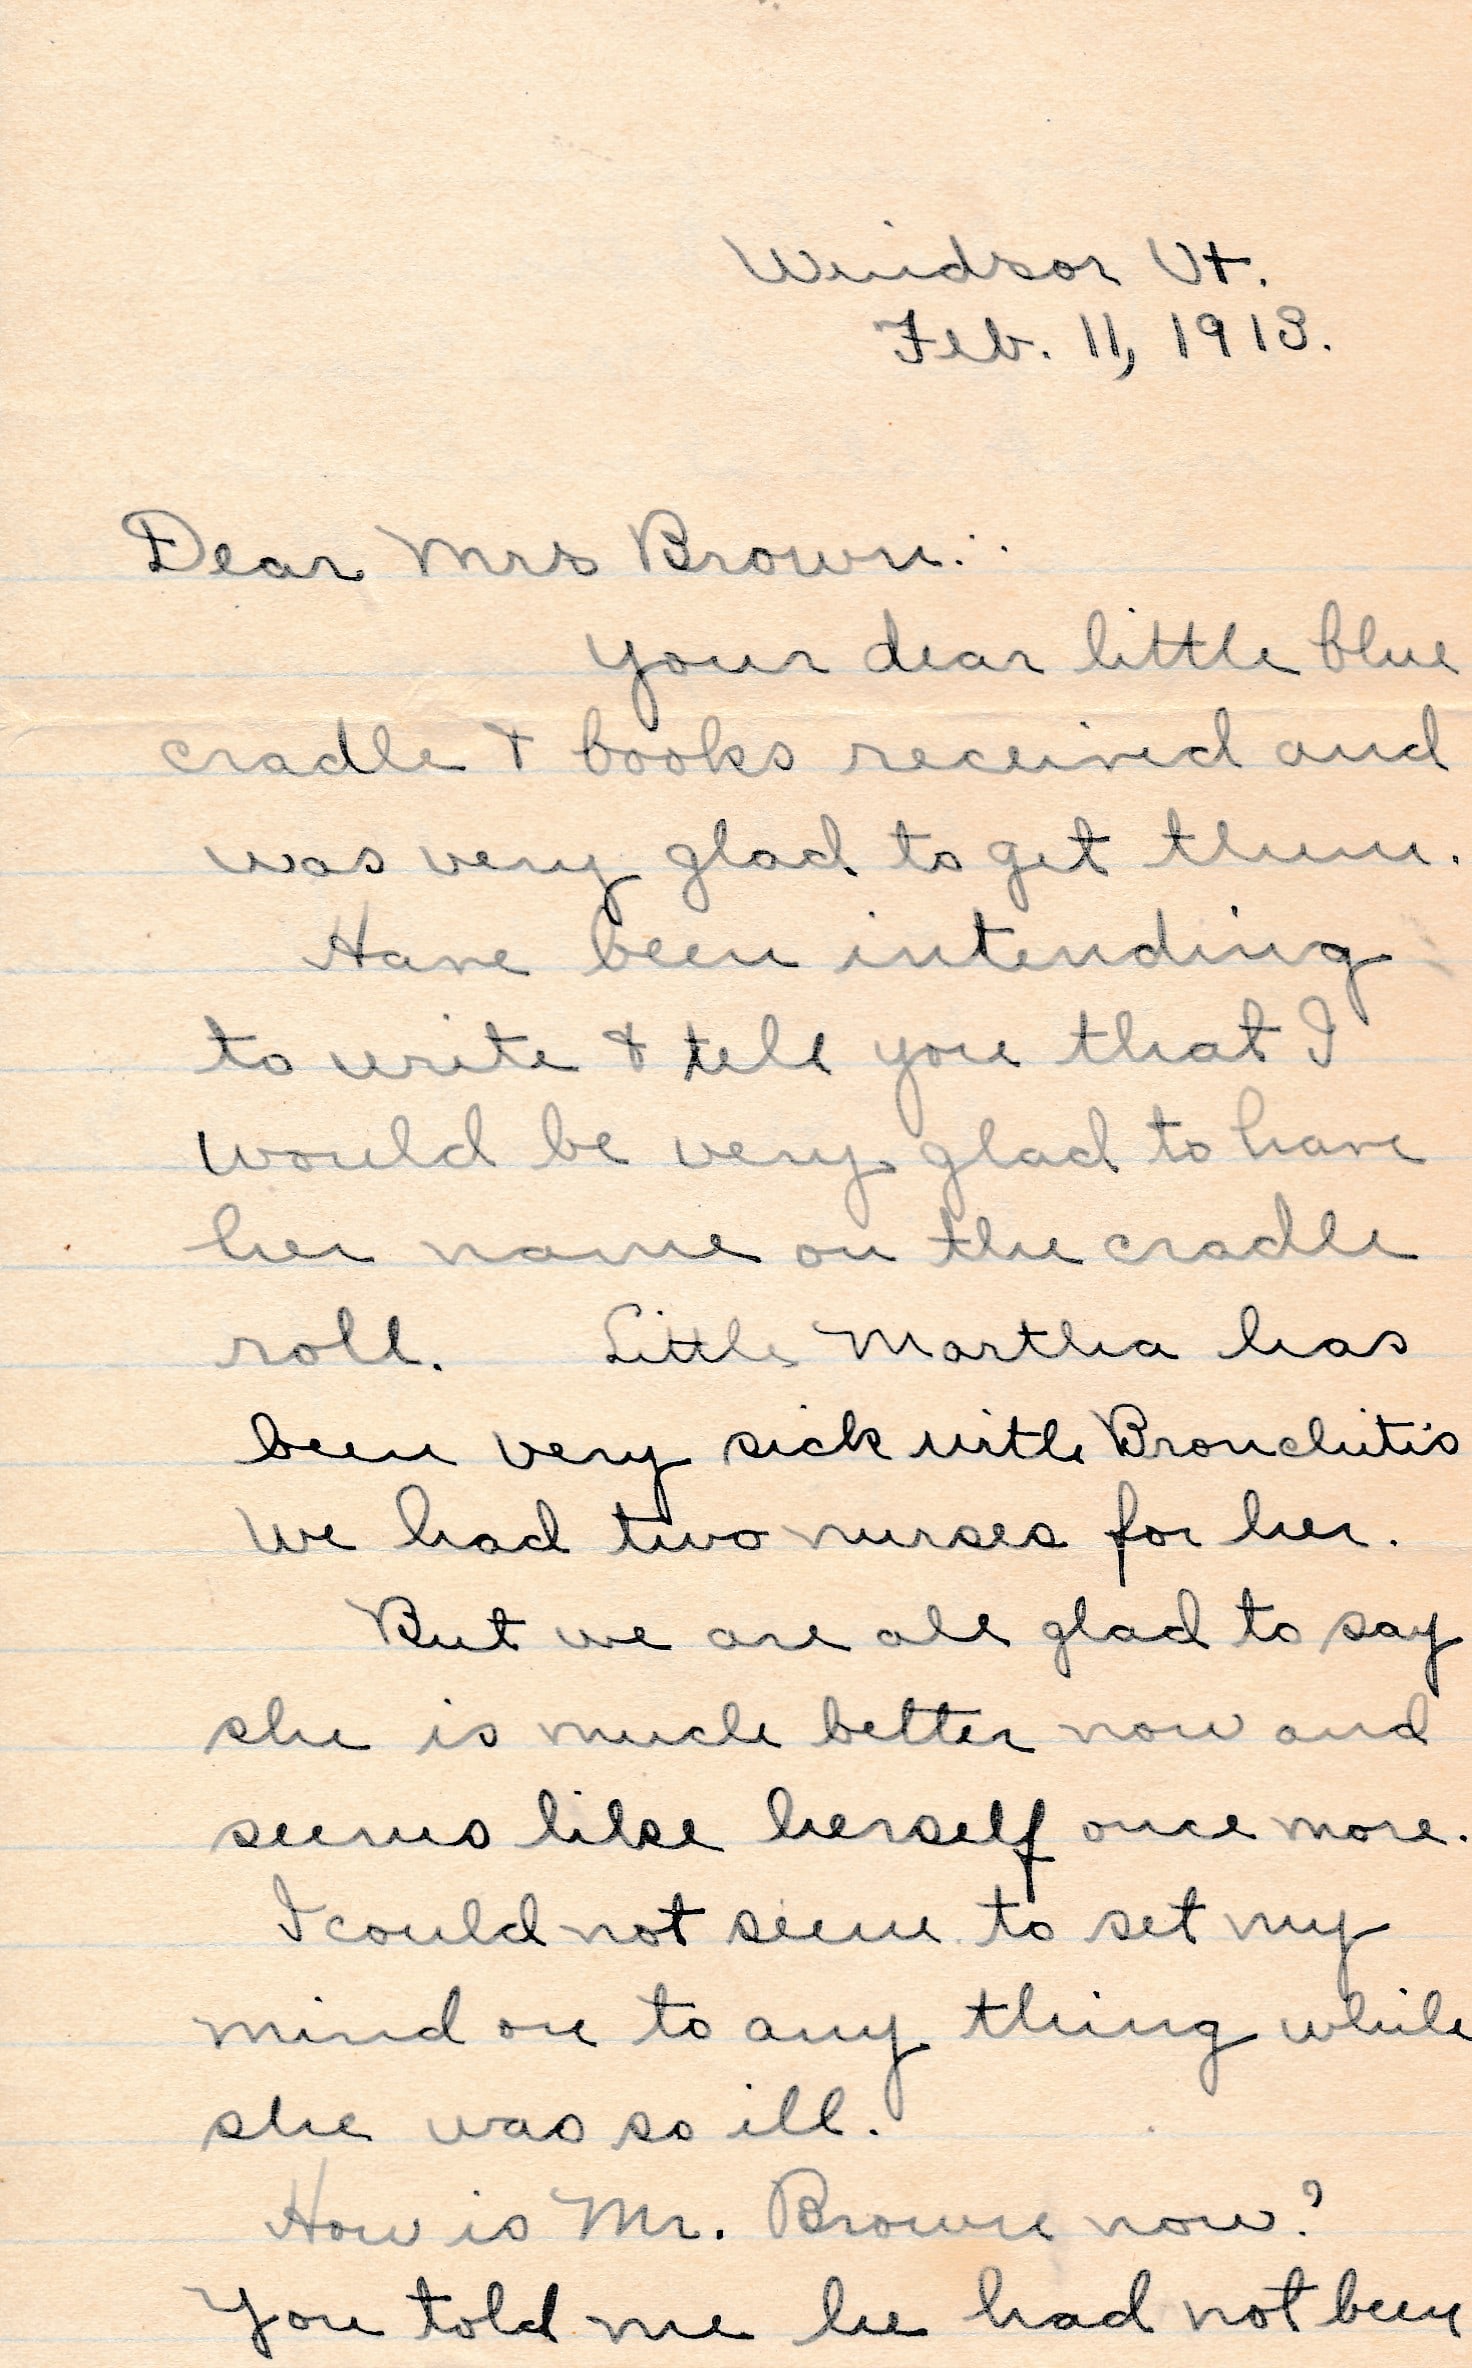 Windsor Vt.
Feb. 11, 1913.
Dear Mrs Brown:.
your dear little blue
cradle & books received and
was very glad to get them.
Have been intending
to write & tell you that I
would be very glad to have
her name on the cradle
roll. Little Martha has
been very sick with Bronchitis
We had two nurses for her.
But we are all glad to say
she is much better now and
seems like herself once more.
I could not seem to set my
mind on to any thing while
she was so ill.
How is Mr. Brown now?
You told me he had not been